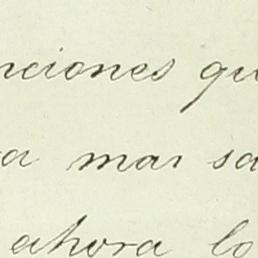 nciones qu
a mas sa
ahora lo